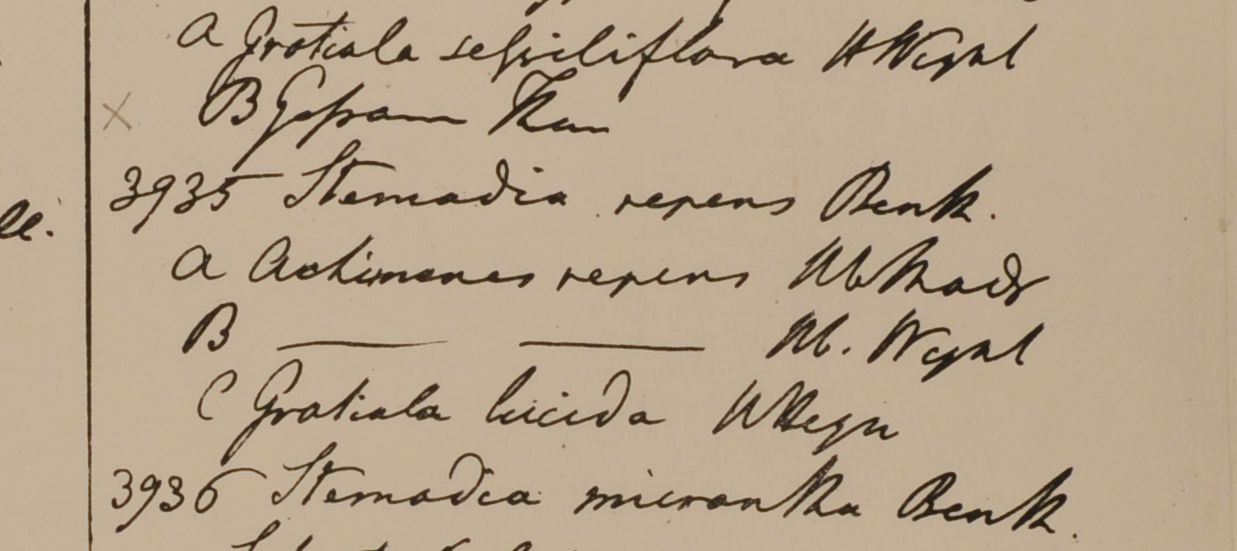 a Gratiola sessiliflora H Wghl
B Gossam Khan
3935 Stemadia repens Benth.
ll.
a Achimenes repens Hb Madr
B ——— ——— Hb. Wghl
C Gratiola lucida H Heyn
3936 Stemadia micrantha Benth.